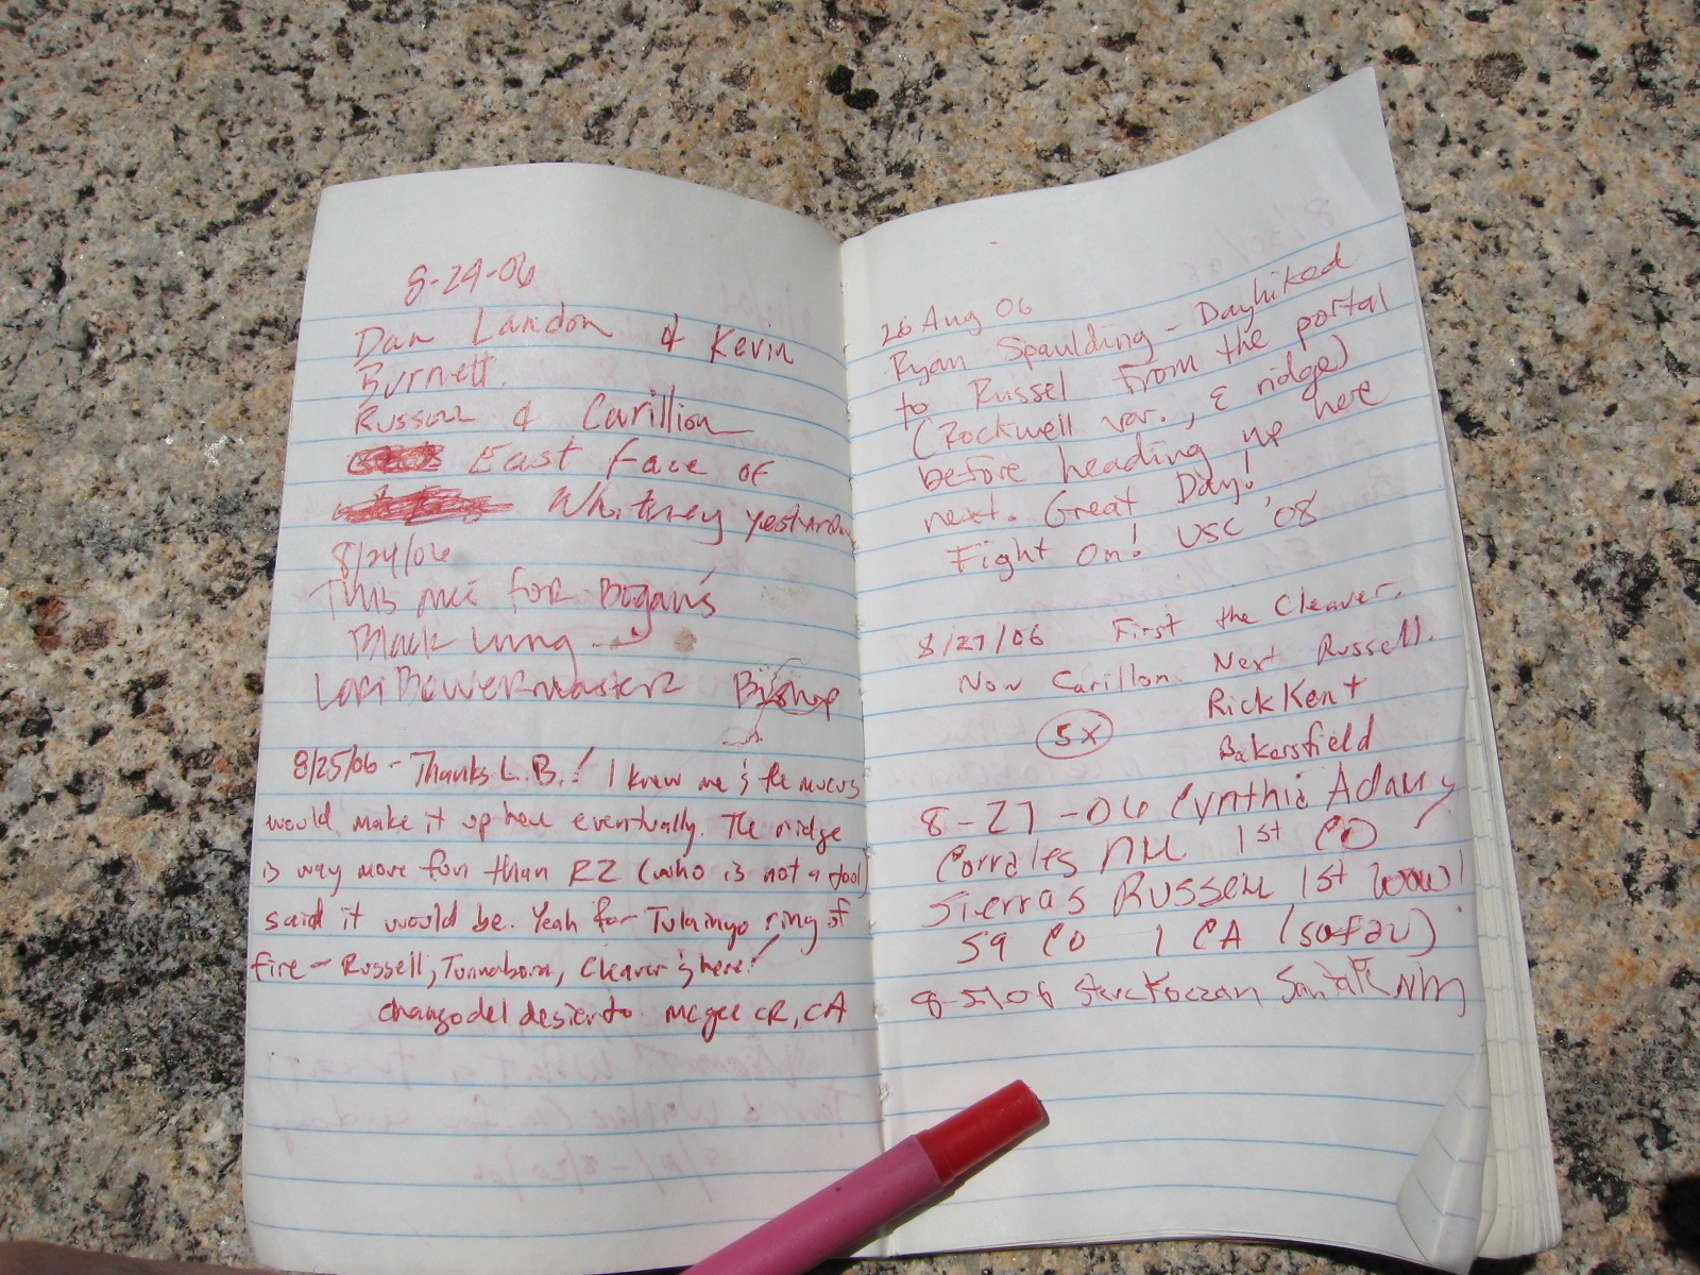 8-24-06
Dan Landon & Kevin
Burnett.
Russell & Carillion
East face of
Whitney yesterday
8/24/06
This one for Bogan's
Black Lung
Lori Bowermaster Bishop
8/25/06 - Thanks L.B.! I knew me & the mucus
would make it up here eventually. The ridge
is way more fun than RZ (who is not a fool)
said it would be. Yeah for Tulainyo ring of
fire - Russell, Tunnabora, Cleaver & here!
changodeldesierto mcgee CR, CA
26 Aug 06
Ryan Spaulding - Dayhiked
to Russel from the portal
(Rockwell var., & ridge)
before heading up here
next. Great Day!
Fight On! USC '08
8/27/06 First the Cleaver.
Now Carillon. Next Russell.
5X Rick Kent
Bakersfield
8-27-06 Cynthia Adamy
Corrales NM 1st CO
Sierras Russell 1st wow!
59 CO 1 CA (sofar)
San NM